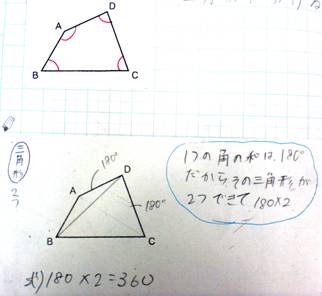 D
A
B
C
三角形
2つ
180°
D
A
180°
B
C
1つの角の和は、180°
だから、その三角形が
2つできて180×2
式)180×2=360